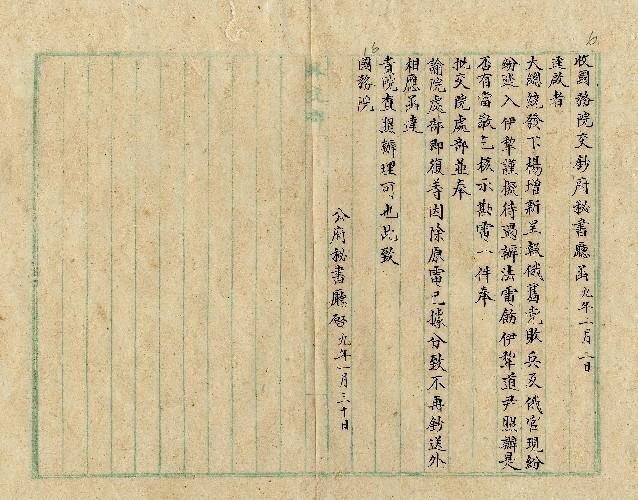 收國務院交鈔府秘書廳函 九年二月二日
逕啟者
大總統發下楊增新呈報俄舊党敗兵及俄官現紛
紛逃入伊犂謹擬待遇辦法電飭伊犂道尹照辦是
否有當敬乞核示勘電一件奉
批交院處部並奉
諭院處部即復等因除原電已據分致不再鈔送外
相應函達
貴院查照辦理可也此致
國務院
公府秘書廳啓 九年一月三十日
6
16